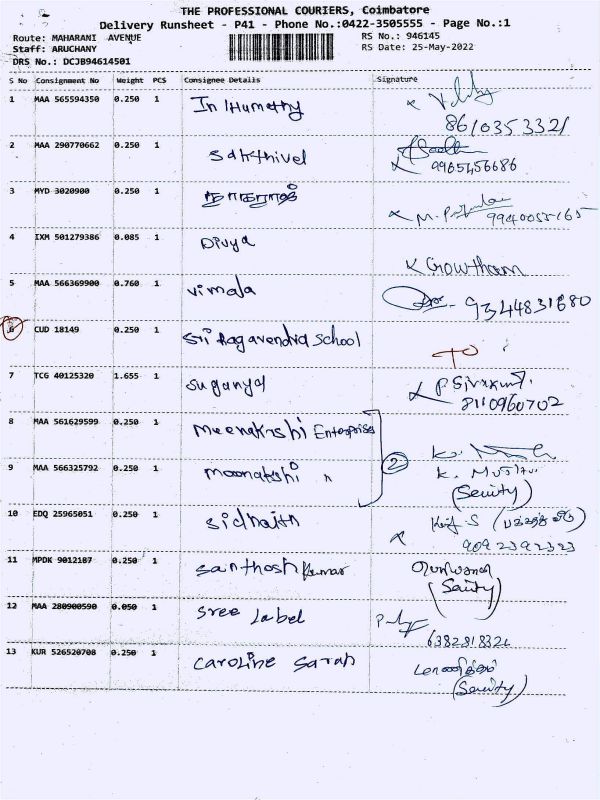 THE PROFESSIONAL COURIERS, Coimbatore
Delivery Runsheet - P41 - Phone No.:0422-3505555 - Page No.:1
Route: MAHARANI AVENUE RS No.: 946145
Staff: ARUCHANY RS Date: 25-May-2022
DRS No.: DCJB94614501
S No Consignment No Weight PCS Consignee Details Signature
1 MAA 565594350 0.250 1
8610353321
2 MAA 290770662 0.250 1 Sakthivel
9965456686
3 MYD 3020900 0.250 1 நாகராஜ்
9940055165
4 IXM 501279386 0.085 1 Divya
Gowtham
5 MAA 566369900 0.760 1 vimala
9344831680
6 CUD 18149 0.250 1 Sri Ragavendra School
TO
7 TCG 40125320 1.655 1 Suganya P. Sivakumar
8110960702
8 MAA 561629599 0.250 1 Meenakshi Enterprises
2
9 MAA 566325792 0.250 1 Moonakshi "
(Seuity)
10 EDQ 25965051 0.250 1 Sidharth
9092392323
11 MPDK 9012187 0.250 1 Santhosh Kumar
(Seuity)
12 MAA 280900590 0.050 1 Sree Label
6382318321
13 KUR 526520708 0.250 1 Caroline Sarah மாணிக்கம்
(Seuity)